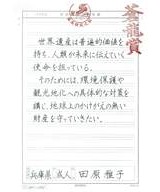 蒼龍賞
世界遺産は普遍的価値を
持ち、人類が未来に伝えていく
使命を担っている。
そのためには、環境保護や
観光地化への具体的な対策を
講じ、地球上のかけがえの無い
財産を守っていきたい。
兵庫県 成人 田原雅子